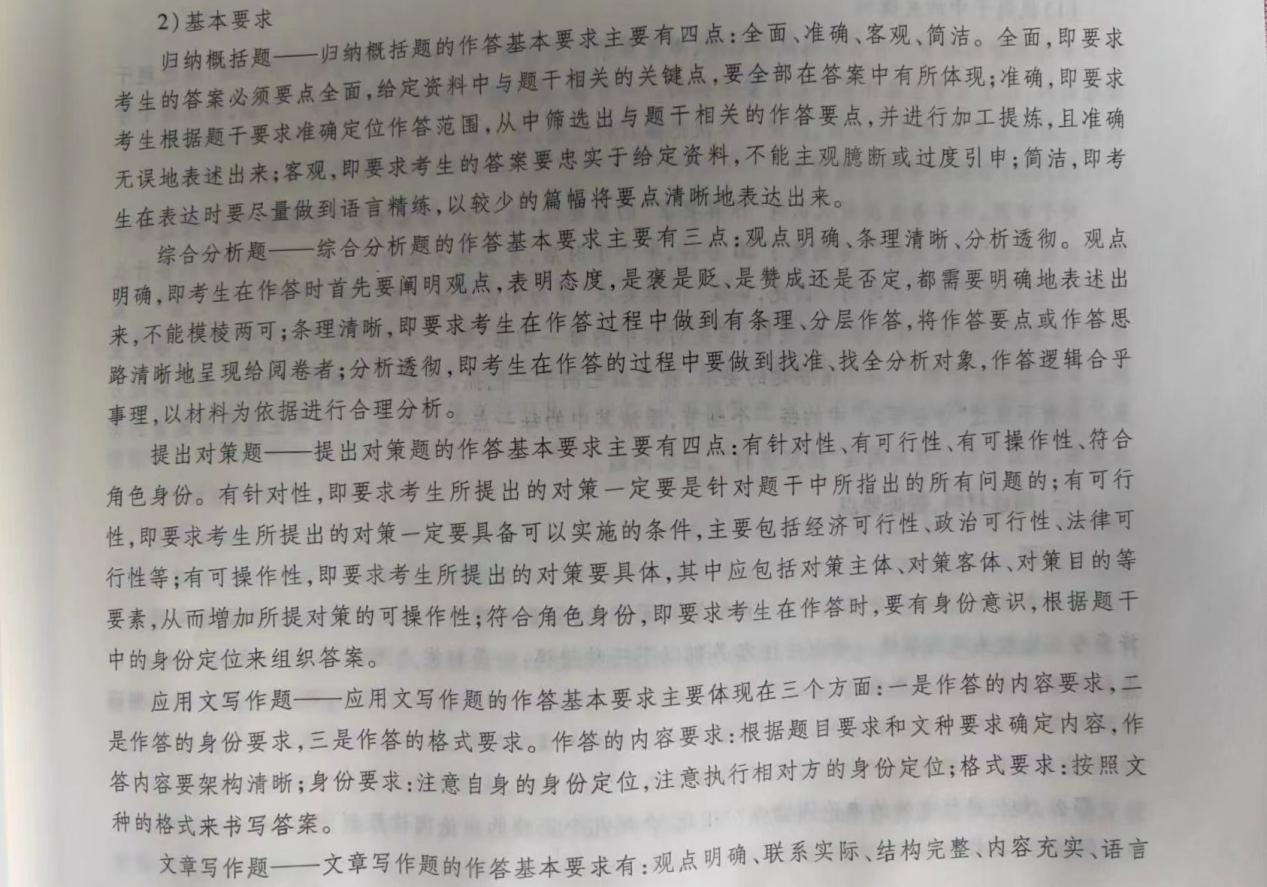 2)基本要求
归纳概括题——归纳概括题的作答基本要求主要有四点:全面、准确、客观、简洁。全面,即要求
考生的答案必须要点全面,给定资料中与题干相关的关键点,要全部在答案中有所体现;准确,即要求
考生根据题干要求准确定位作答范围,从中筛选出与题干相关的作答要点,并进行加工提炼,且准确
无误地表述出来;客观,即要求考生的答案要忠实于给定资料,不能主观臆断或过度引申;简洁,即考
生在表达时要尽量做到语言精练,以较少的篇幅将要点清晰地表达出来。
综合分析题——综合分析题的作答基本要求主要有三点:观点明确、条理清晰、分析透彻。观点
明确,即考生在作答时首先要阐明观点,表明态度,是褒是贬、是赞成还是否定,都需要明确地表述出
来,不能模棱两可;条理清晰,即要求考生在作答过程中做到有条理、分层作答,将作答要点或作答思
路清晰地呈现给阅卷者;分析透彻,即考生在作答的过程中要做到找准、找全分析对象,作答逻辑合乎
事理,以材料为依据进行合理分析。
提出对策题——提出对策题的作答基本要求主要有四点:有针对性、有可行性、有可操作性、符合
角色身份。有针对性,即要求考生所提出的对策一定要是针对题干中所指出的所有问题的;有可行
性,即要求考生所提出的对策一定要具备可以实施的条件,主要包括经济可行性、政治可行性、法律可
行性等;有可操作性,即要求考生所提出的对策要具体,其中应包括对策主体、对策客体、对策目的等
要素,从而增加所提对策的可操作性;符合角色身份,即要求考生在作答时,要有身份意识,根据题干
中的身份定位来组织答案。
应用文写作题——应用文写作题的作答基本要求主要体现在三个方面:一是作答的内容要求,二
是作答的身份要求,三是作答的格式要求。作答的内容要求:根据题目要求和文种要求确定内容,作
答内容要架构清晰;身份要求:注意自身的身份定位,注意执行相对方的身份定位;格式要求:按照文
种的格式来书写答案。
文章写作题——文章写作题的作答基本要求有:观点明确、联系实际、结构完整、内容充实、语言